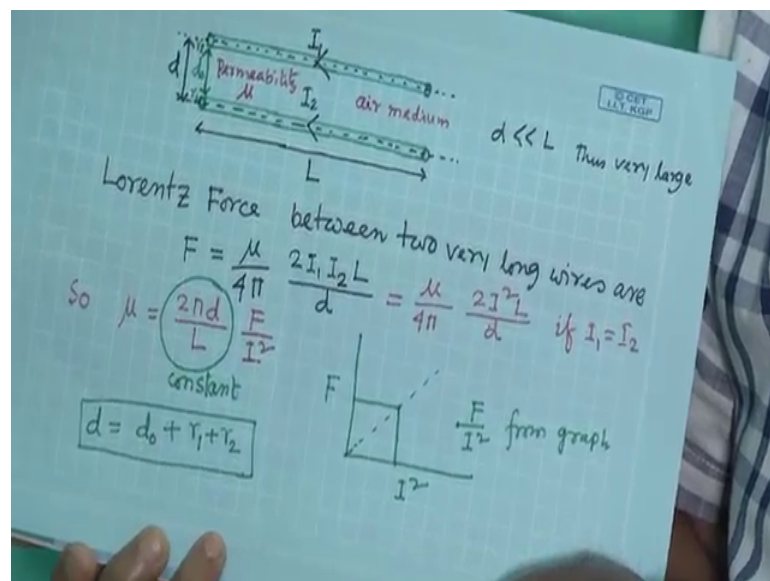 I₁
r₁
d
d₀
Permeability
μ
I₂
air medium
r₂
L
© CET
I.I.T. KGP
d << L Thus very large
Lorentz Force between two very long wires are
F = μ/4π 2I₁I₂L/d = μ/4π 2I²L/d if I₁ = I₂
So μ = 2πd/L F/I²
constant
d = d₀ + r₁ + r₂
F
I²
F/I² from graph